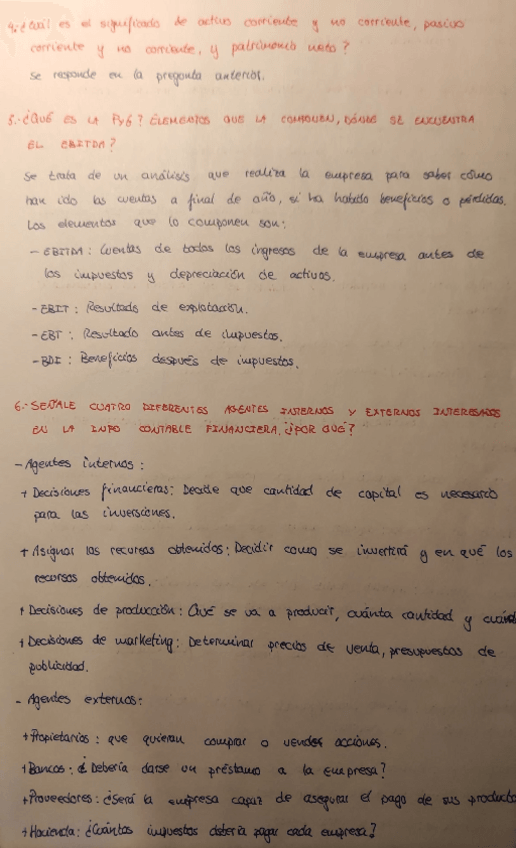 4.-¿Cuál es el significado de activo corriente y no corriente, pasivo
corriente y no corriente, y patrimonio neto?
Se responde en la pregunta anterior.
5.-¿QUÉ ES LA PyG? ELEMENTOS QUE LA COMPONEN, DÓNDE SE ENCUENTRA
EL EBITDA?
Se trata de un análisis que realiza la empresa para saber cómo
han ido las cuentas a final de año, si ha habido beneficios o pérdidas.
Los elementos que lo componen son:
- EBITDA: Cuentas de todos los ingresos de la empresa antes de
los impuestos y depreciación de activos.
- EBIT: Resultado de explotación.
- EBT: Resultado antes de impuestos.
- BDI: Beneficios después de impuestos.
6.- SEÑALE CUATRO DIFERENTES AGENTES INTERNOS Y EXTERNOS INTERESADOS
EN LA INFO CONTABLE FINANCIERA, ¿POR QUÉ?
- Agentes internos:
+ Decisiones financieras: Decide que cantidad de capital es necesario
para las inversiones.
+ Asignar los recursos obtenidos: Decidir como se invertirá y en qué los
recursos obtenidos.
+ Decisiones de producción: Qué se va a producir, cuánta cantidad y
+ Decisiones de marketing: Determinar precios de venta, presupuestos de
publicidad.
- Agentes externos:
+ Propietarios: que quieran comprar o vender acciones.
+ Bancos: ¿Debería darse un préstamo a la empresa?
+ Proveedores: ¿Será la empresa capaz de asegurar el pago de sus producto
+ Hacienda: ¿Cuántos impuestos debería pagar cada empresa?